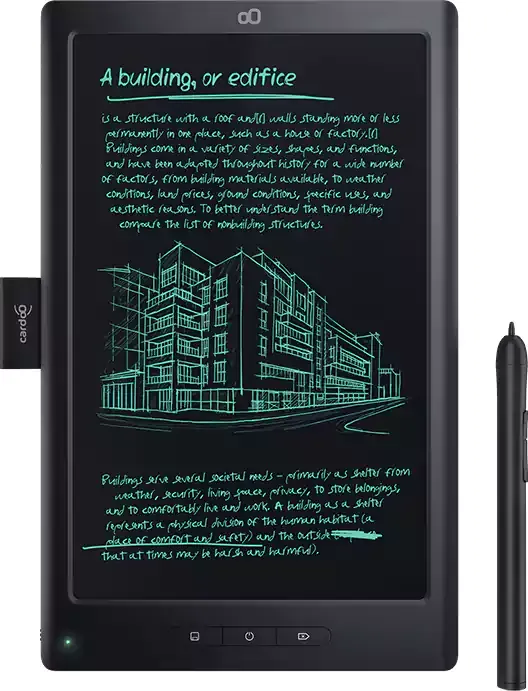 A building, or edifice
is a structure with a roof and[1] walls standing more or less
permanently in one place, such as a house or factory.[1]
Buildings come in a variety of sizes, shapes, and functions,
and have been adapted throughout history for a wide number
of factors, from building materials available, to weather
conditions, land prices, ground conditions, specific uses, and
aesthetic reasons. To better understand the term building
compare the list of nonbuilding structures.
cardoo
Buildings serve several societal needs – primarily as shelter from
weather, security, living space, privacy, to store belongings,
and to comfortably live and work. A building as a shelter
represents a physical division of the human habitat (a
place of comfort and safety) and the outside
that at times may be harsh and harmful).